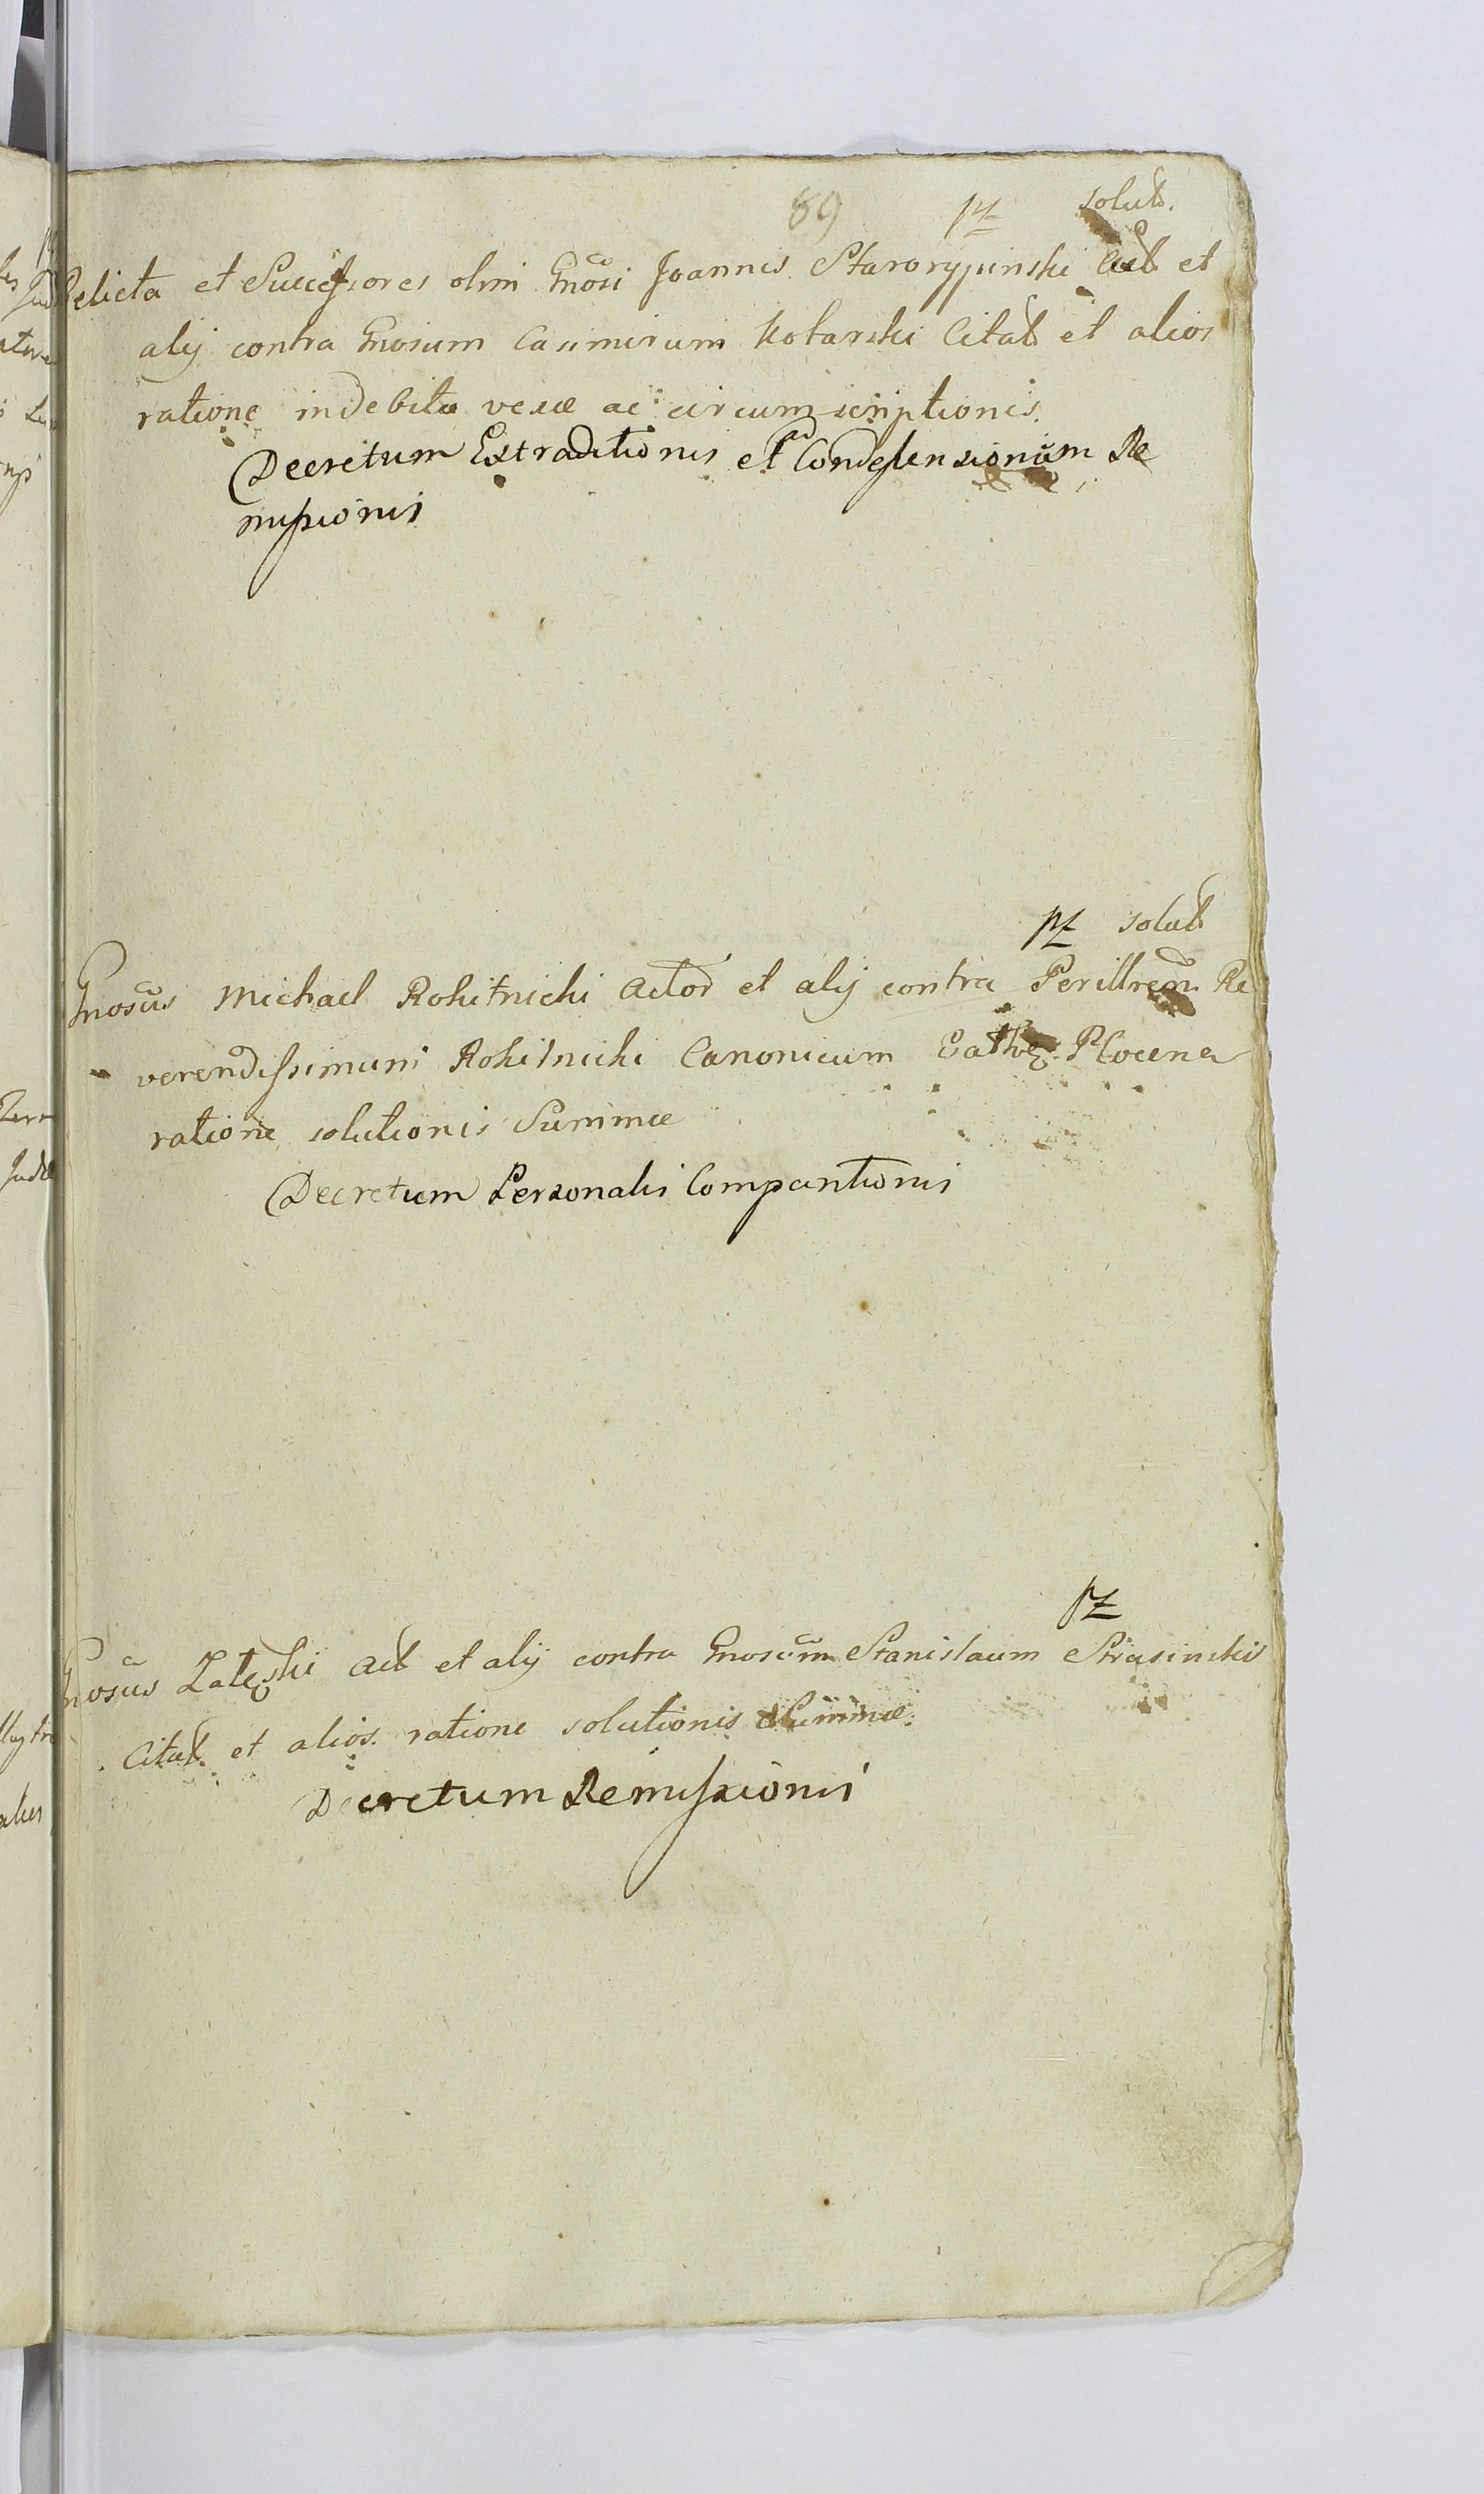 89 pt solut.
Relicta et Successores olim Gnosi Joannis Starorypinski Act et
alij contra Gnosum Casimirum Kotarski Citat et alios
ratione indebitæ vexæ ac circumscriptionis.
Decretum Extraditionis et ad Condessensionum Re
missionis
pt solut
Gnosus Michael Rokitnicki Actor et alij contra Perillrem Re
verendissimum Rokitnicki Canonicum Cathed Plocen
ratione solutionis Summæ
Decretum Personalis Comparitionis
pt
Gnosus Zaleski Act et alij contra Gnosum Stanislaum
Citat. et alios. ratione solutionis Summæ.
Decretum Remissionis